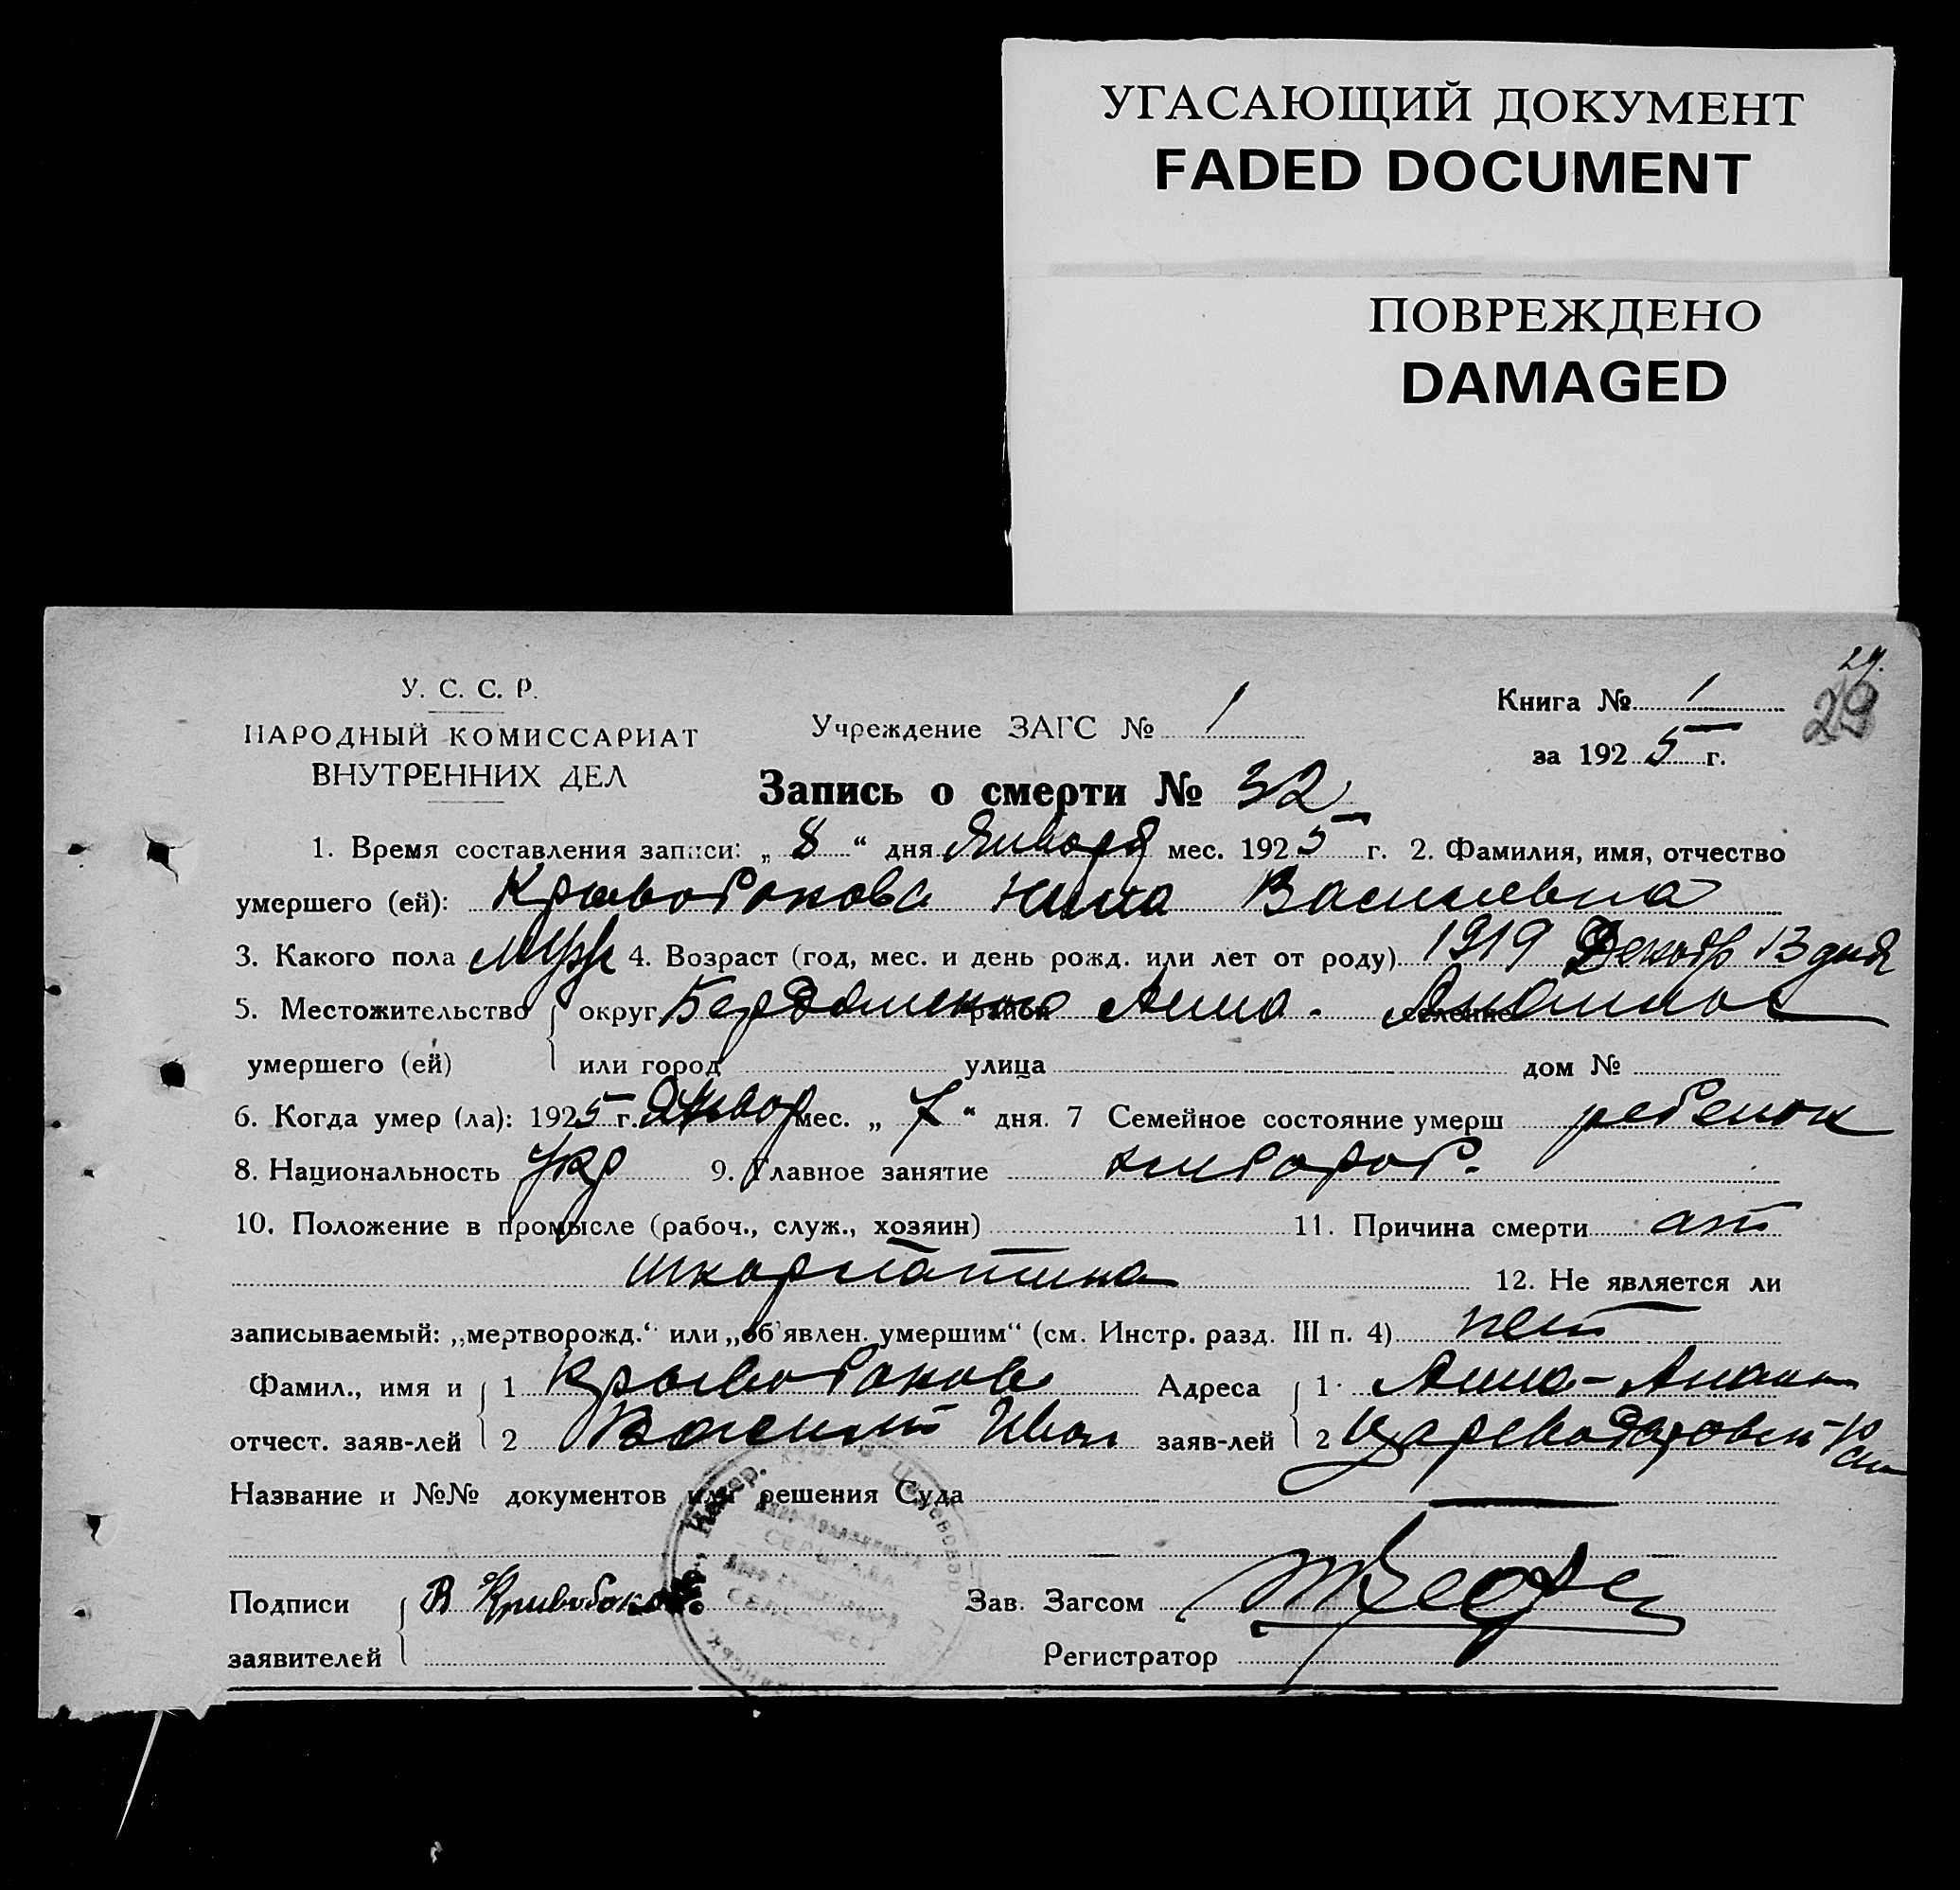 УГАСАЮЩИЙ ДОКУМЕНТ
FADED DOCUMENT
ПОВРЕЖДЕНО
DAMAGED
29.
29
У. С. С. Р.
НАРОДНЫЙ КОМИССАРИАТ
ВНУТРЕННИХ ДЕЛ
Учреждение ЗАГС № 1
Книга № 1
за 1925 г.
Запись о смерти № 32
1. Время составления записи: „ 8 “ дня Января мес. 1925 г. 2. Фамилия, имя, отчество
умершего (ей): Крывобокова Васильевна
3. Какого пола 4. Возраст (год, мес. и день рожд. или лет от роду) 1919 Декабр 13 дня
5. Местожительство округ Бердянского район Анно- селение
умершего (ей) или город улица дом №
6. Когда умер (ла): 1925 г. Январ мес. „ 7 “ дня. 7 Семейное состояние умерш ребенок
8. Национальность Укр 9. Главное занятие хлебороб.
10. Положение в промысле (рабоч., служ., хозяин) 11. Причина смерти от
шкорлатина 12. Не является ли
записываемый: „мертворожд.“ или „об'явлен. умершим“ (см. Инстр. разд. III п. 4) нет
Фамил., имя и 1 Крывобоков Адреса 1 Анно-
отчест. заяв-лей 2 Василий Иван заяв-лей 2
Название и №№ документов или решения Суда
Подписи В Кривобоков Зав. Загсом
заявителей Регистратор